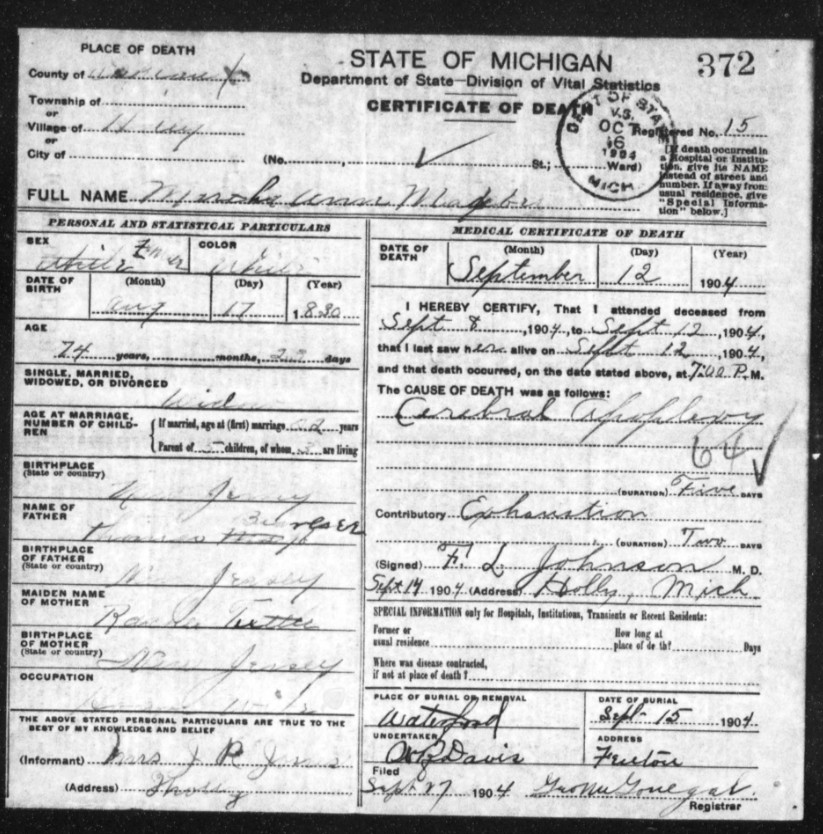 372
PLACE OF DEATH
STATE OF MICHIGAN
County of
Department of State—Division of Vital Statistics
Township of
or
CERTIFICATE OF DEATH
Village of Holly
or
City of
(No. , St.; Ward)
Registered No. 15
DEPT OF STATE
V.S.
OC
16
1904
MICH.
[If death occurred in
a Hospital or Institu-
tion, give its NAME
instead of street and
number. If away from
usual residence, give
"Special Informa-
tion" below.]
FULL NAME Martha Anne
PERSONAL AND STATISTICAL PARTICULARS
SEX
COLOR
White White
DATE OF BIRTH (Month) (Day) (Year)
Aug 17 1830
AGE
74 years, months, days
SINGLE, MARRIED,
WIDOWED, OR DIVORCED
Widow
AGE AT MARRIAGE,
NUMBER OF CHILD-
REN
If married, age at (first) marriage 22 years
Parent of 5 children, of whom are living
BIRTHPLACE
(State or country)
New Jersey
NAME OF
FATHER
Thomas
BIRTHPLACE
OF FATHER
(State or country)
New Jersey
MAIDEN NAME
OF MOTHER
Tuttle
BIRTHPLACE
OF MOTHER
(State or country)
New Jersey
OCCUPATION
House Wife
THE ABOVE STATED PERSONAL PARTICULARS ARE TRUE TO THE
BEST OF MY KNOWLEDGE AND BELIEF
(Informant) Mrs J R Jones
(Address) Holly
MEDICAL CERTIFICATE OF DEATH
DATE OF DEATH (Month) (Day) (Year)
September 12 1904
I HEREBY CERTIFY, That I attended deceased from
Sept 8, 1904, to Sept 12, 1904,
that I last saw her alive on Sept 12, 1904,
and that death occurred, on the date stated above, at 7:00 P. M.
The CAUSE OF DEATH was as follows:
Cerebral Apoplexy
64
(DURATION) Five DAYS
Contributory Exhaustion
(DURATION) Two DAYS
(Signed) F. L. Johnson M. D.
Sept 14 1904 (Address) Holly, Mich
SPECIAL INFORMATION only for Hospitals, Institutions, Transients or Recent Residents:
Former or
usual residence
How long at
place of death? Days
Where was disease contracted,
if not at place of death?
PLACE OF BURIAL OR REMOVAL
Waterford
DATE OF BURIAL
Sept 15 1904
UNDERTAKER
Davis
ADDRESS
Fenton
Filed
Sept 27 1904
Registrar